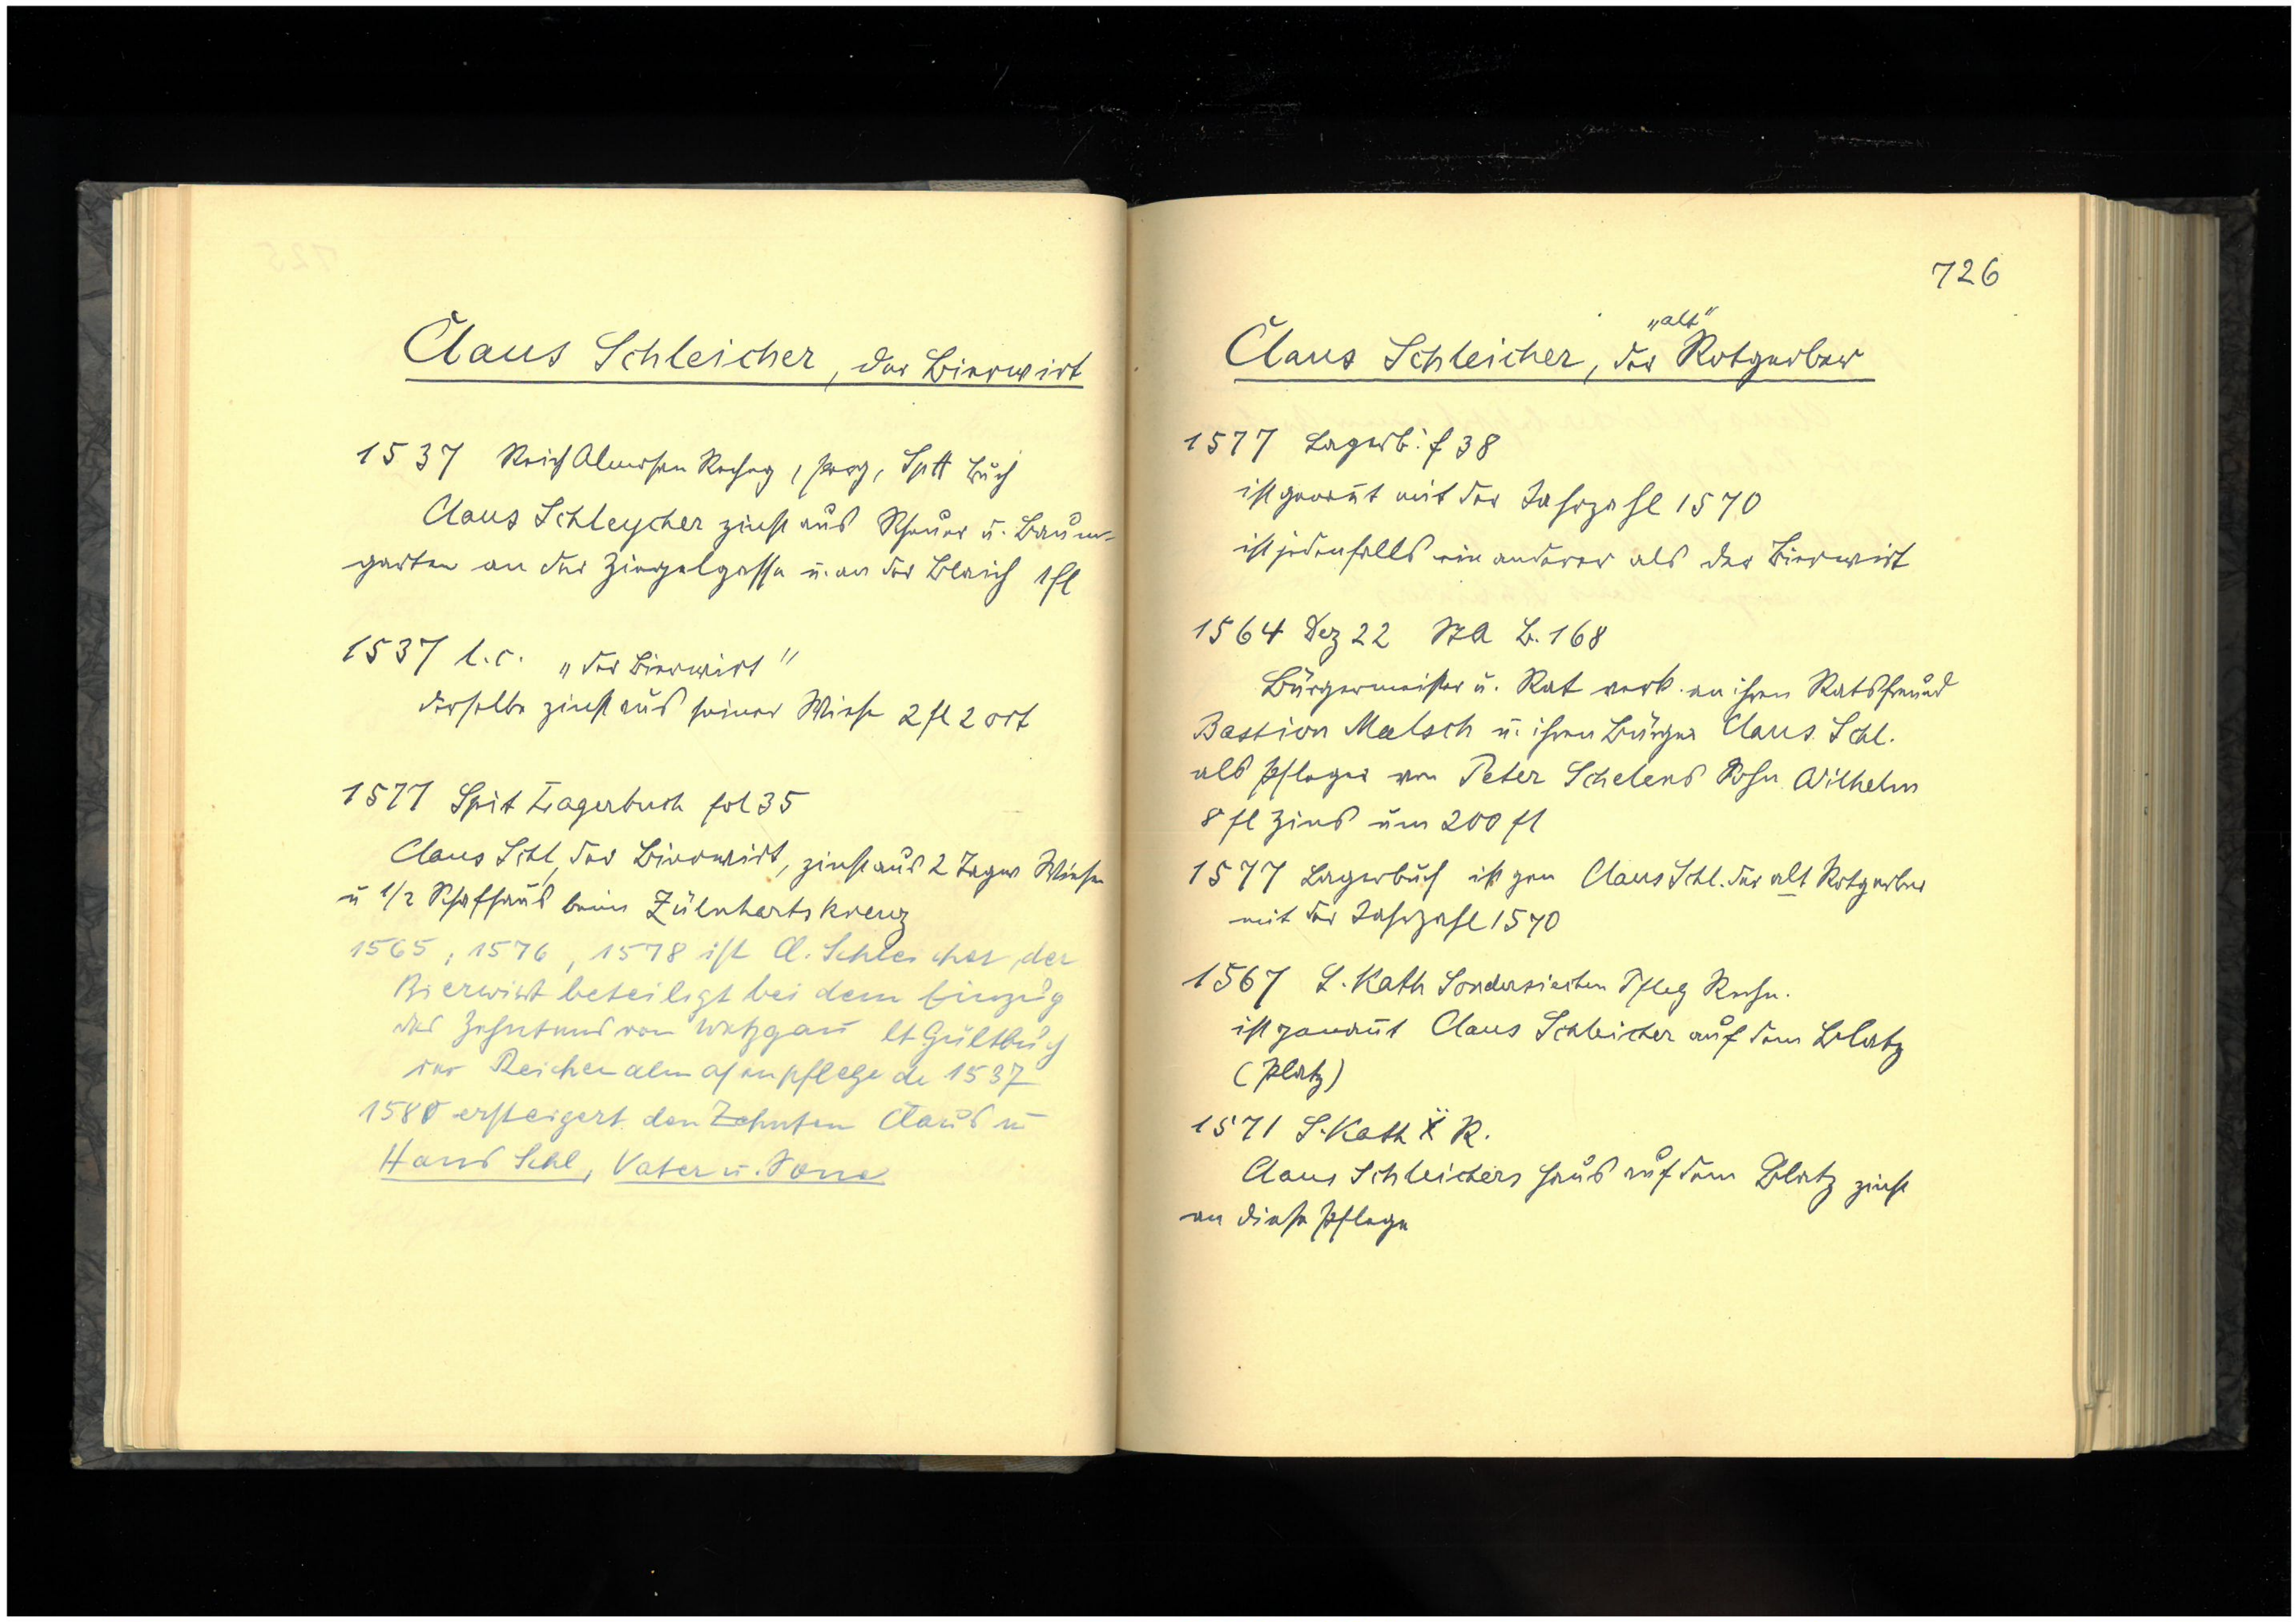 Claus Schleicher, der Bierwirt
1537 Reich Almosen Rechng, perg, Spit Buch
Claus Schleycher zinst aus Scheuer u. Baum-
garten an der Ziegelgasse u. an der Blaich 1 fl
1537 l.c. „der Bierwirt"
derselbe zinst aus seiner Wiese 2 fl 2 ort
1577 Spit Lagerbuch fol 35
Claus Schl, der Bierwirt, zinst aus 2 Tagw Wiesen
u 1/2 Schafhaus beim Zülnhartskreuz
1565, 1576, 1578 ist Cl. Schleicher der
Bierwirt beteiligt bei dem Einzug
des Zehntens von Wetzgau lt Gültbuch
der Reichenalmosenpflege de 1537
1580 ersteigert den Zehnten Claus u
Hans Schl, Vater u. Sone
726
„alt"
Claus Schleicher, der Rotgerber
1577 Lagerb. f 38
ist genannt mit der Jahrzahl 1570
ist jedenfalls ein anderer als der Bierwirt
1564 Dez 22 StA B. 168
Bürgermeister u. Rat verk. an ihren Ratsfreund
Bastion Malsch u. ihren Bürger Claus Schl.
als Pfleger von Peter Schelens Sohn Wilhelm
8 fl Zins um 200 fl
1577 Lagerbuch ist gen Claus Schl. der alt Rotgerber
mit der Jahrzahl 1570
1567 S. Kath Sondersiechen Pfleg Rechn.
ist genannt Claus Schleicher auf dem Blatz
(Platz)
1571 S. Kath R.
Claus Schleichers Haus auf dem Blatz zinst
an diese Pflege